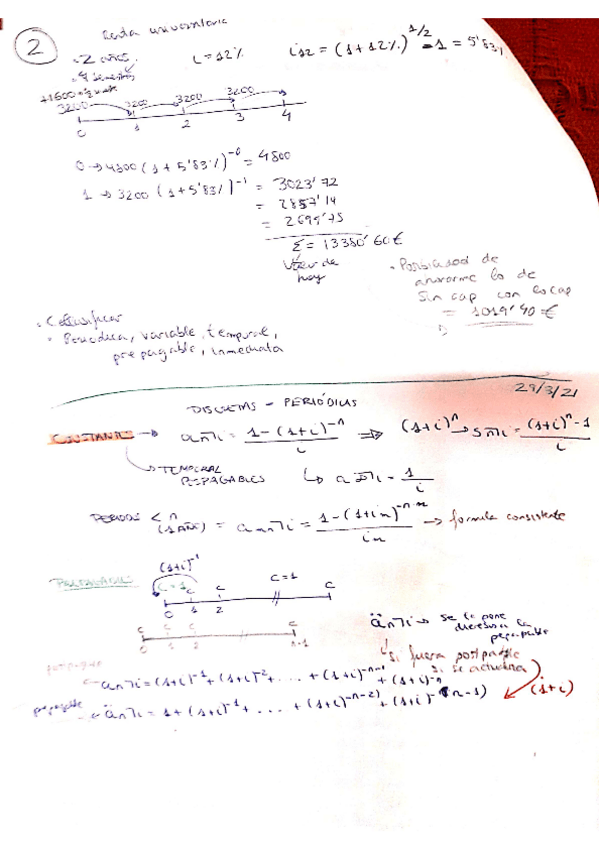 2
Renta universitaria
· 2 años. i = 12% i12 = (1+12%)^1/2 - 1 = 5'83%
· 4 semestres
+1600
3200 3200 3200 3200
0 1 2 3 4
0 → 4800 (1+5'83%)^-0 = 4800
1 → 3200 (1+5'83%)^-1 = 3023'72
= 2857'14
= 2699'75
Σ = 13380'60€
Valor de
hoy
· Posibilidad de
ahorrarme lo de
sin cap con lo cap
= 1019'40 €
· Clasificar
· Periodica, variable, temporal,
prepagable, inmediata
29/3/21
DISCRETAS - PERIÓDICAS
CONSTANTES → an¬i = 1-(1+i)^-n / i ⇒ (1+i)^n → sn¬i = (1+i)^n - 1 / i
→ TEMPORAL
POSPAGABLES ↳ a∞¬i = 1 / i
PERIODOS < n
(1 AÑO) = an¬i = 1-(1+im)^-n·m / im → formula consistente
(1+i)^-1
PREPAGABLE C=1 C C C=1 C
0 1 2
C C C
0 1 2 n-1
än¬i → se le pone
dieresis a la
prepagable
↳ si fuera postpagable
si se actualiza
postpagable → an¬i = (1+i)^-1 + (1+i)^-2 + ... + (1+i)^-n-1 + (1+i)^-n
prepagable → än¬i = 1 + (1+i)^-1 + ... + (1+i)^-n-2) + (1+i)^-(n-1) (1+i)